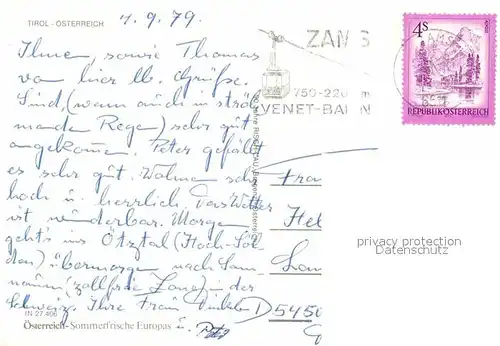 TIROL - ÖSTERREICH
4.9.79.
Ihnen sowie Thomas
von hier lb. Grüße.
Sind, (wenn auch in strö-
mendem Regen) sehr gut
angekommen. Peter gefällt
es sehr gut. Wohnen sehr
hoch u. herrlich. Das Wetter
ist wunderbar. Morgen
geht's ins Ötztal (Hoch-Söl-
den) übermorgen nach Sam-
naun (zollfreie Zone) in der
Schweiz. Ihre Frau
u. Peter
IN 27.406
Österreich - Sommerfrische Europas
ZAMS
750-220 m
VENET-BAHN
4S
REPUBLIK ÖSTERREICH
Frau
Hel
D 5450
privacy protection
Datenschutz